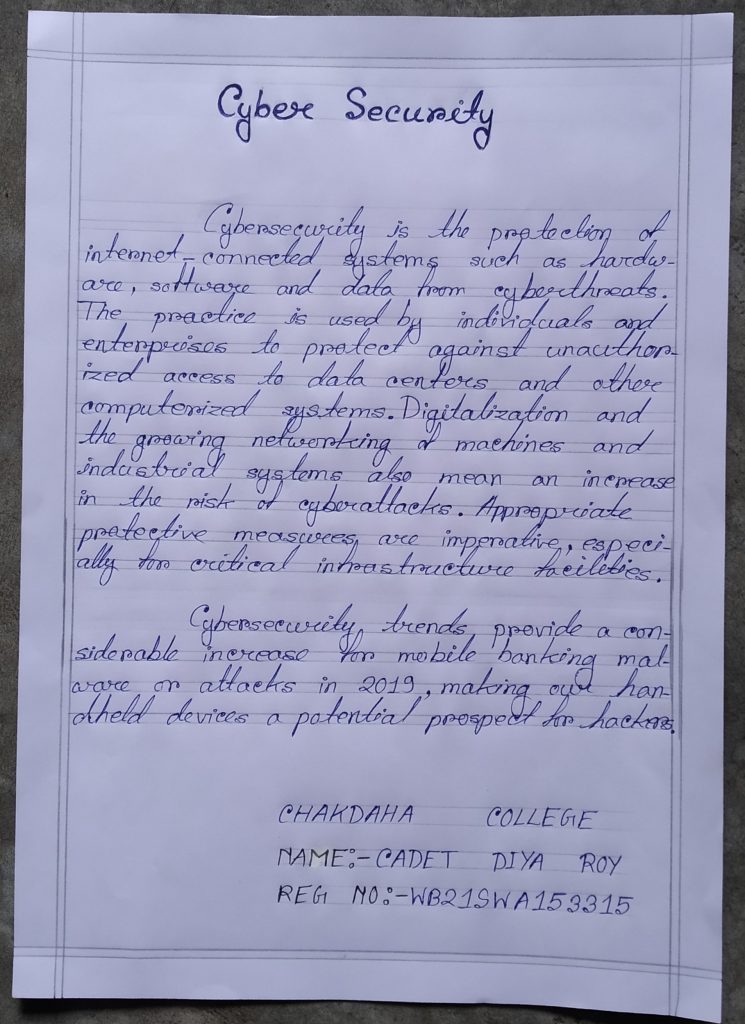 Cyber Security
Cybersecurity is the protection of
internet-connected systems such as hardw-
are, software and data from cyberthreats.
The practice is used by individuals and
enterprises to protect against unauthor-
ized access to data centers and other
computerized systems. Digitalization and
the growing networking of machines and
industrial systems also mean an increase
in the risk of cyberattacks. Appropriate
protective measures are imperative, especi-
ally for critical infrastructure facilities.
Cybersecurity trends provide a con-
siderable increase for mobile banking mal-
ware or attacks in 2019, making our han-
dheld devices a potential prospect for hackers.
CHAKDAHA COLLEGE
NAME:- CADET DIYA ROY
REG NO:-WB21SWA153315